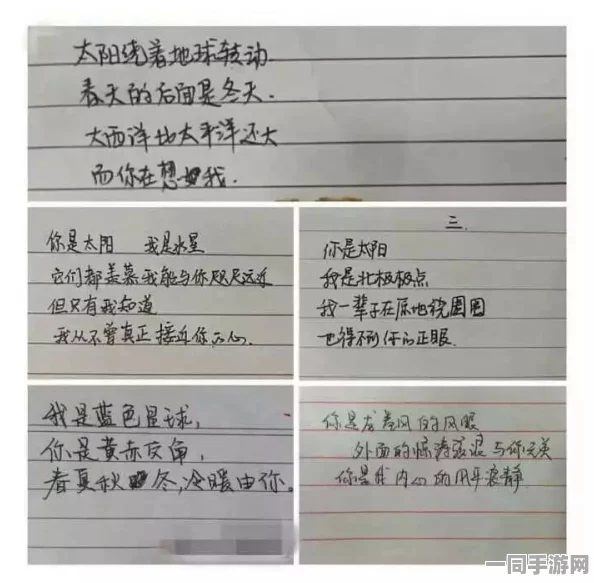 太阳绕着地球转动
春天的后面是冬天.
大西洋比太平洋还大
而你在想我.
你是太阳 我是水星
它们都羡慕我能与你咫尺远近
但只有我知道
我从不曾真正接近你的心.
三.
你是太阳
我是北极极点
我一辈子在原地绕圈圈
也得不到你的正眼.
我是蓝色星球,
你是黄赤交角,
春夏秋冬,冷暖由你.
你是龙卷风的风眼
外面的惊涛骇浪与你无关
你是我内心的风平浪静.
一同手游网